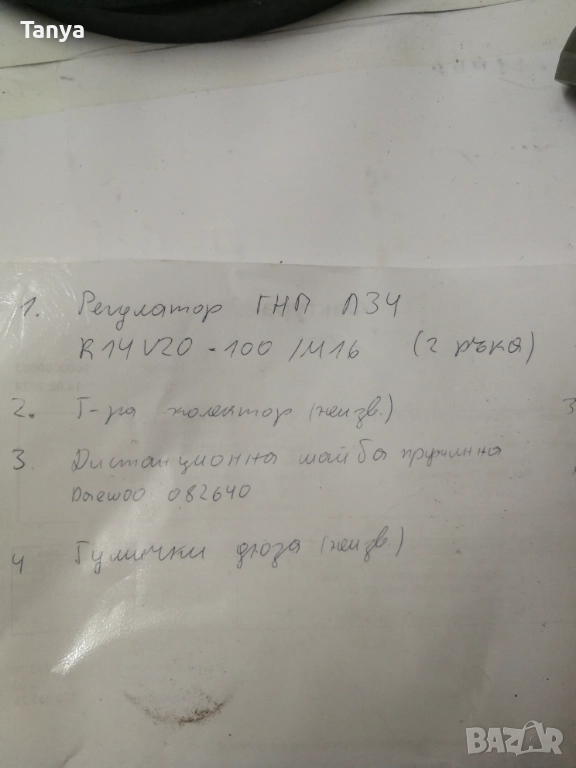 Tanya
1. Регулатор ГНП ПЗЧ
R14V20-100/M16 (2 ръка)
2. Г-ра колектор (неизв.)
3
3. Дистанционна шайба пружинна
Daewoo 082640
4 Гумички дюза (неизв.)
BAZAR